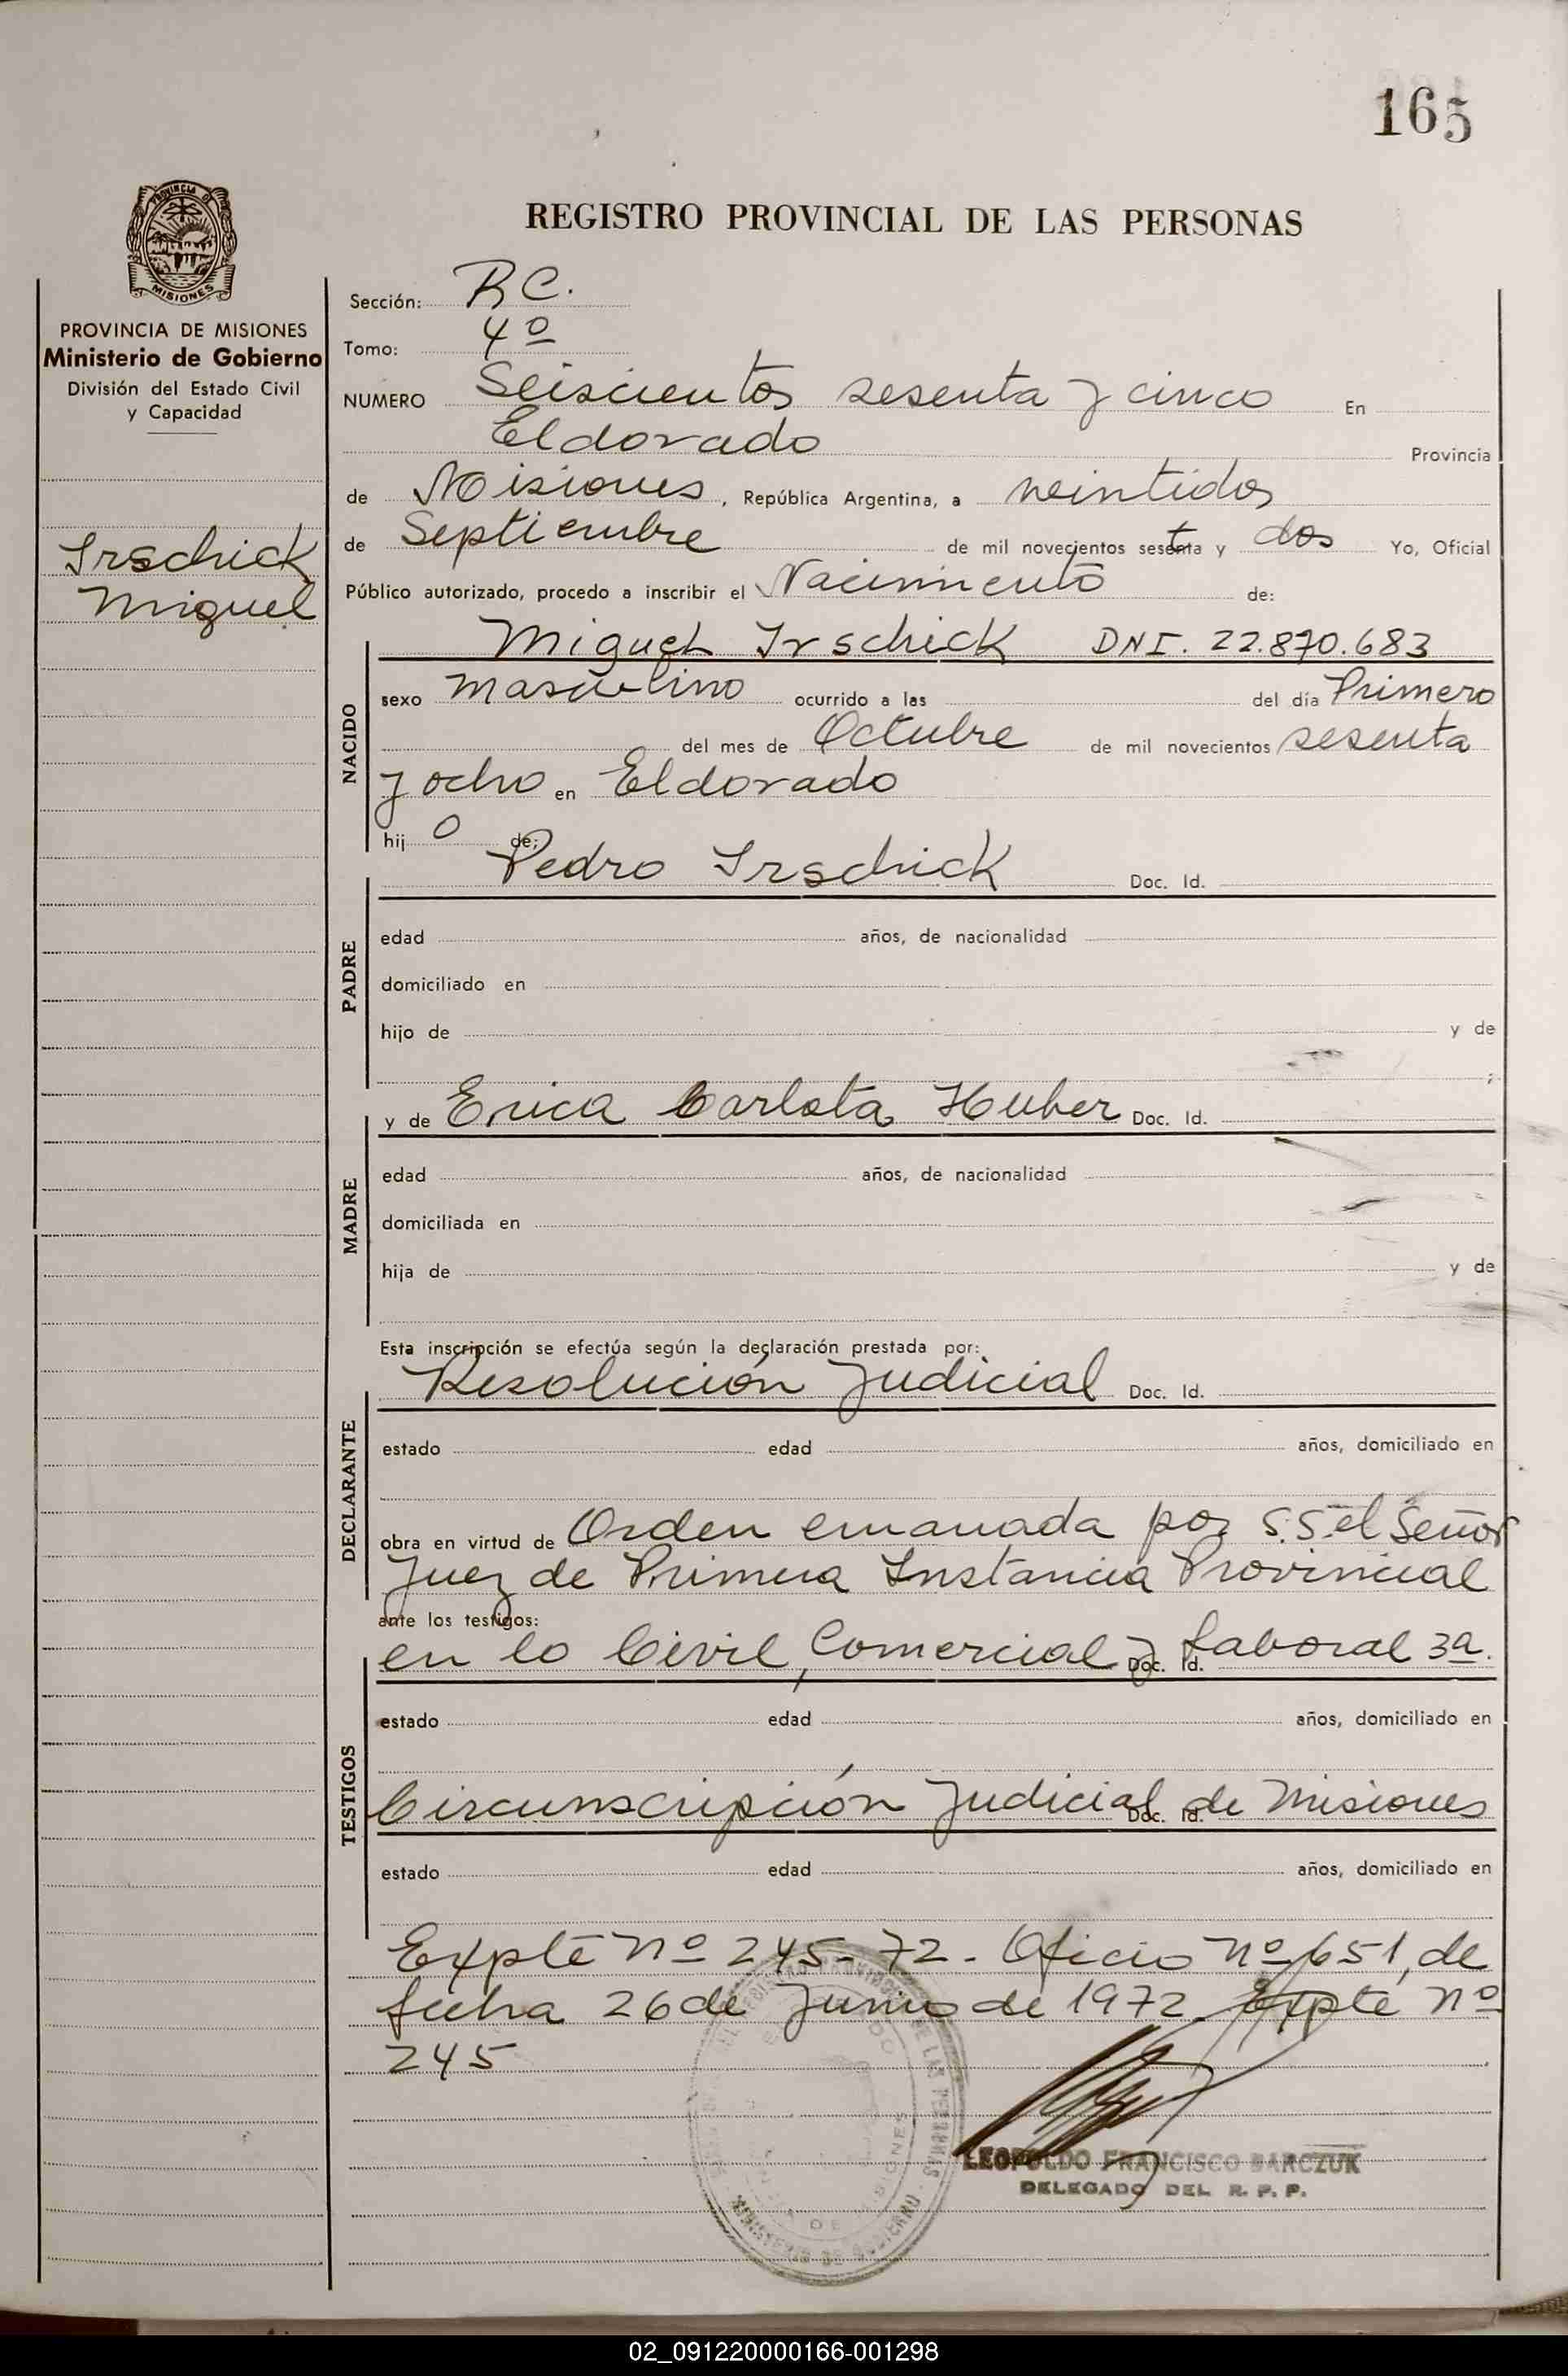 165
REGISTRO PROVINCIAL DE LAS PERSONAS
PROVINCIA DE MISIONES
Ministerio de Gobierno
División del Estado Civil
y Capacidad
Irschick
Miguel
Sección: RC.
Tomo: 4º
NUMERO Seiscientos sesenta y cinco En
Eldorado Provincia
de Misiones, República Argentina, a veintidos
de Septiembre de mil novecientos setenta y dos Yo, Oficial
Público autorizado, procedo a inscribir el Nacimiento de:
NACIDO
Miguel Irschick DNI. 22.870.683
sexo masculino ocurrido a las del día Primero
del mes de Octubre de mil novecientos sesenta
y ocho en Eldorado
hijo de:
PADRE
Pedro Irschick Doc. Id.
edad años, de nacionalidad
domiciliado en
hijo de y de
;
MADRE
y de Erica Carlota Huber Doc. Id.
edad años, de nacionalidad
domiciliada en
hija de y de
Esta inscripción se efectúa según la declaración prestada por:
DECLARANTE
Resolución Judicial Doc. Id.
estado edad años, domiciliado en
obra en virtud de Orden emanada por S.S. el Señor
Juez de Primera Instancia Provincial
ante los testigos:
TESTIGOS
en lo Civil, Comercial y Laboral 3a. Doc. Id.
estado edad años, domiciliado en
Circunscripción Judicial de Misiones Doc. Id.
estado edad años, domiciliado en
Expte Nº 245-72. Oficio Nº 651, de
fecha 26 de Junio de 1972. Expte Nº
245
LEOPOLDO FRANCISCO BARCZUK
DELEGADO DEL R. P. P.
02_091220000166-001298